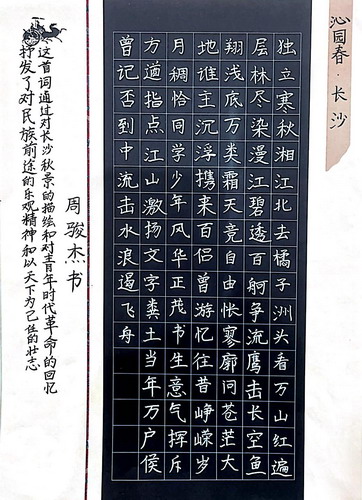 沁园春·长沙
独立寒秋湘江北去橘子洲头看万山红遍
层林尽染漫江碧透百舸争流鹰击长空鱼
翔浅底万类霜天竞自由怅寥廓问苍茫大
地谁主沉浮携来百侣曾游忆往昔峥嵘岁
月稠恰同学少年风华正茂书生意气挥斥
方遒指点江山激扬文字粪土当年万户侯
曾记否到中流击水浪遏飞舟
周骏杰书
这首词通过对长沙秋景的描绘和对青年时代革命的回忆
抒发了对民族前途的乐观精神和以天下为己任的壮志